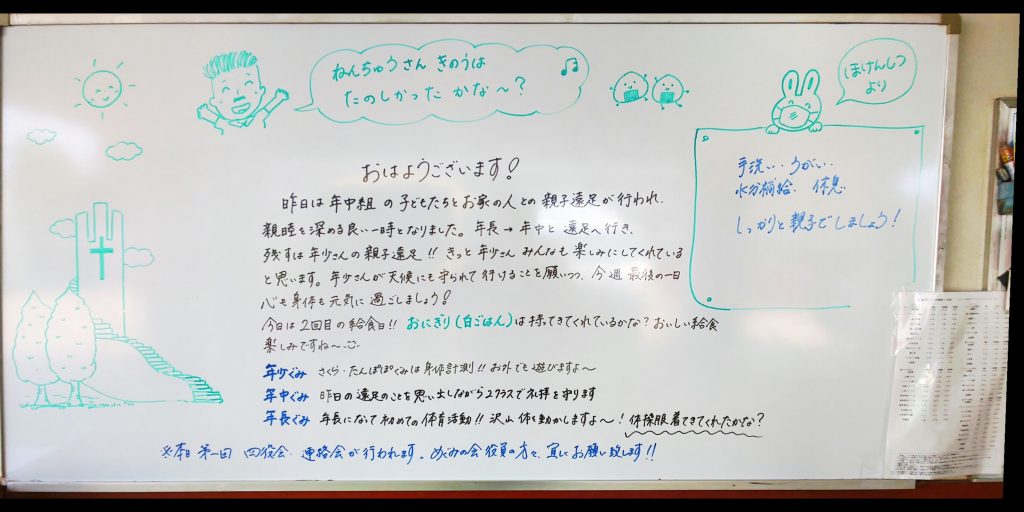 ねんちゅうさん きのうは
たのしかった かな～？
ほけんしつ
より
手洗い・・うがい・・
水分補給、休息
しっかりと親子でしましょう！
おはようございます！
昨日は年中組の子どもたちとお家の人との親子遠足が行われ、
親睦を深める良い一時となりました。年長→年中と遠足へ行き、
残すは年少さんの親子遠足！！きっと年少さんみんなも楽しみにしてくれている
と思います。年少さんが天使にも守られて行けることを願いつつ、今週最後の一日
心も身体も元気に過ごしましょう！
今日は2回目の給食日！！おにぎり(白ごはん)は持ってきてくれているかな？おいしい給食
楽しみですね～
年少ぐみ さくら・たんぽぽぐみは身体計測！！お外でも遊びますよ～
年中ぐみ 昨日の遠足のことを思い出しながら2クラスで礼拝を守ります
年長ぐみ 年長になって初めての体育活動！！沢山体を動かしますよ～！体操服着てきてくれたかな？
※本日 第一回 四役会・連絡会が行われます。めぐみの会役員の方々、宜しくお願い致します！！